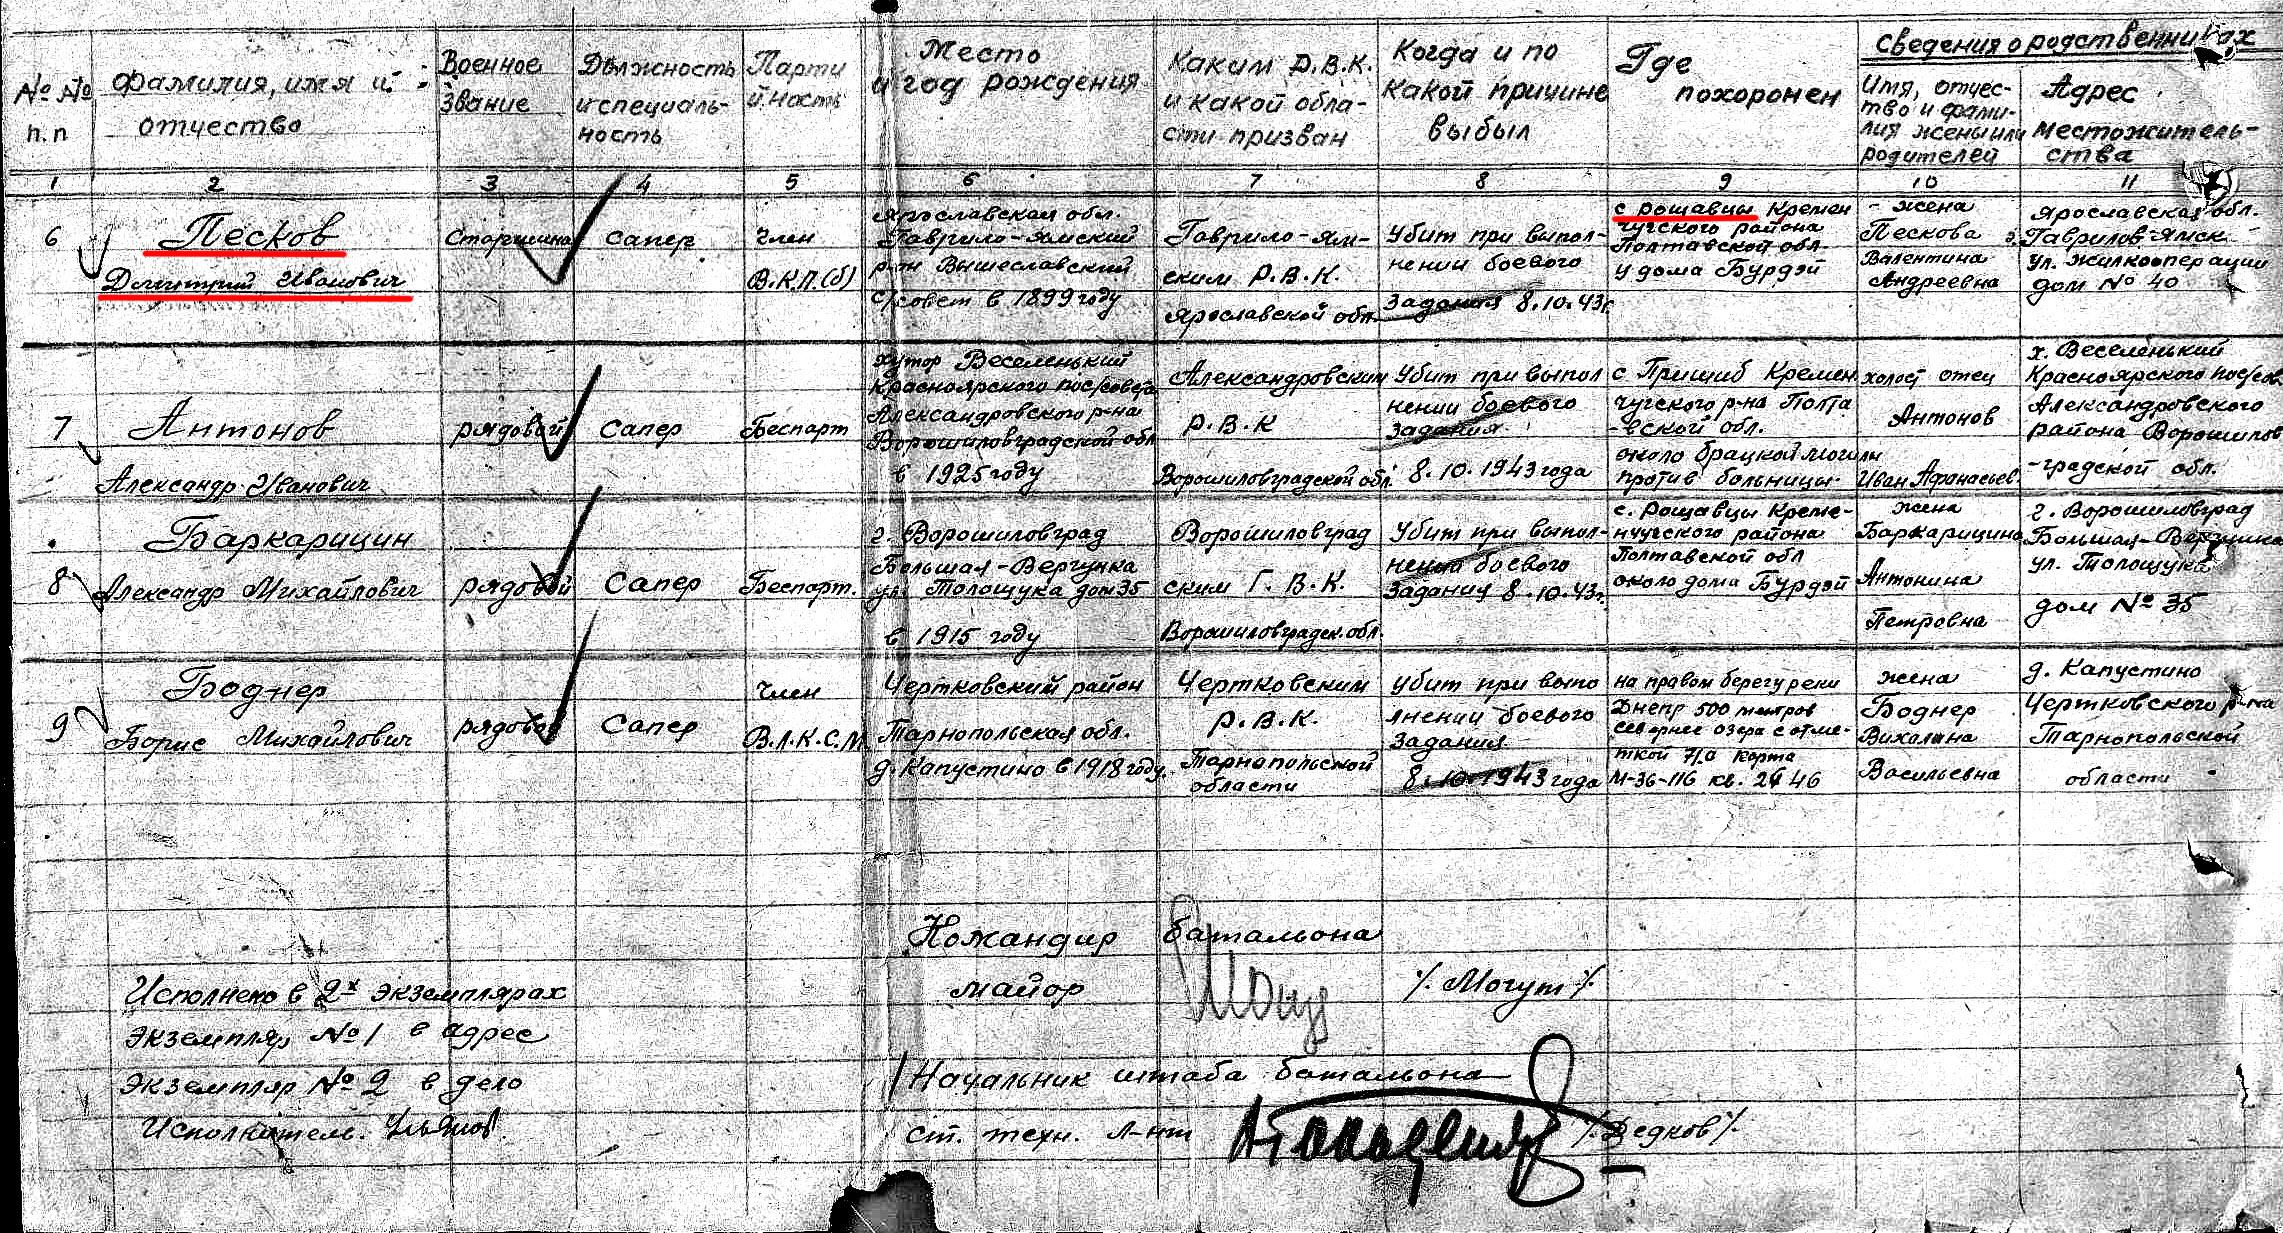 № № п.п
фамилия, имя и отчество
Военное звание
Должность и специальность
Парти йность
Место и год рождения
Каким Р.В.К. и какой области призван
Когда и по какой причине выбыл
Где похоронен
Сведения о родственниках
Имя, отчество и фамилия жены или родителей
Адрес местожительства
1 2 3 4 5 6 7 8 9 10 11
6
Песков
Дмитрий Иванович
Старшина
Сапер
Член
В.К.П.(б)
Ярославская обл.
Гаврило-Ямский
р-он Вышеславский
с/совет в 1899 году
Гаврило-Ям-
ским Р.В.К.
Ярославской обл.
Убит при выпол-
нении боевого
задания 8.10.43г.
с рощавцы Кремен
чугского района
Полтавской обл.
у дома Бурдэй
- жена
Пескова
Валентина
Андреевна
Ярославская обл.
г. Гаврилов-Ямск
ул. Жилкооперации
дом № 40
7
Антонов
Александр Иванович
рядовой
Сапер
Беспарт
хутор Веселенький
Красноярского пос/совета
Александровского р-на
Ворошиловградской обл
в 1925 году
Александровским
Р.В.К
Ворошиловградской обл.
Убит при выпол
нении боевого
задания
8.10.1943 года
с Пришиб Кремен
чугского р-на Полта
-вской обл.
около брацкой могилы
против больницы.
холост отец
Антонов
Иван Афонасьев.
х. Веселенький
Красноярского пос/сов.
Александровского
района Ворошилов
-градской обл.
8
Баркарицин
Александр Михайлович
рядовой
Сапер
Беспарт.
г. Ворошиловград
Большая-Вергунка
ул. Толощука дом 35
в 1915 году
Ворошиловград
ским Г.В.К.
Ворошиловградск. обл.
Убит при выпол-
нении боевого
задания 8.10.43г.
с. Рощавцы Креме-
нчугского района
Полтавской обл
около дома Бурдэй
жена
Баркарицина
Антонина
Петровна
г. Ворошиловград
Большая-Вергунка
ул. Толощука
дом № 35
9
Боднер
Борис Михайлович
рядовой
Сапер
Член
В.Л.К.С.М
Чертковский район
Тарнопольская обл.
д. Капустино в 1918 году.
Чертковским
Р.В.К.
Тарнопольской
области
убит при выпо
лнении боевого
задания
8.10.1943 года
на правом берегу реки
Днепр 500 метров
севернее озера с отме-
ткой 71,0 карта
М-36-116 кв. 46
жена
Боднер
Васильевна
д. Капустино
Чертковского р-на
Тарнопольской
области
Командир батальона
майор /. Могут /.
Начальник штаба батальона
ст. техн. л-нт /. Дедков /.
Исполнено в 2х экземплярах
Экземпляр №1 в адрес
Экземпляр №2 в дело
Исполнитель.